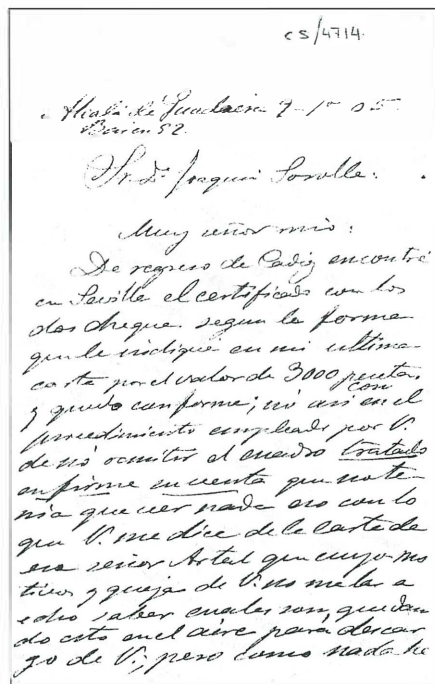 CS/4714.
Alcalá de Guadaira 7-1º 05
Bailén 52
Sr. Dn Joaquin Sorolla.
Muy señor mio:
De regreso de Cadiz encontré
en Sevilla el certificado con los
dos cheques segun la forma
que le indiqué en mi ultima
carta por el valor de 3000 pesetas
y quedo con conforme; no asi en el
procedimiento empleado por V.
de no remitir el cuadro tratado
en firme su venta que no te-
nia que ver nada eso con lo
que V. me dice de la carta de
ese señor Artal que cuyo mo
tivos y queja de V. no me las a
echo saber cuales son, quedan
do esto en el aire para descar
go de V.; pero como nada he